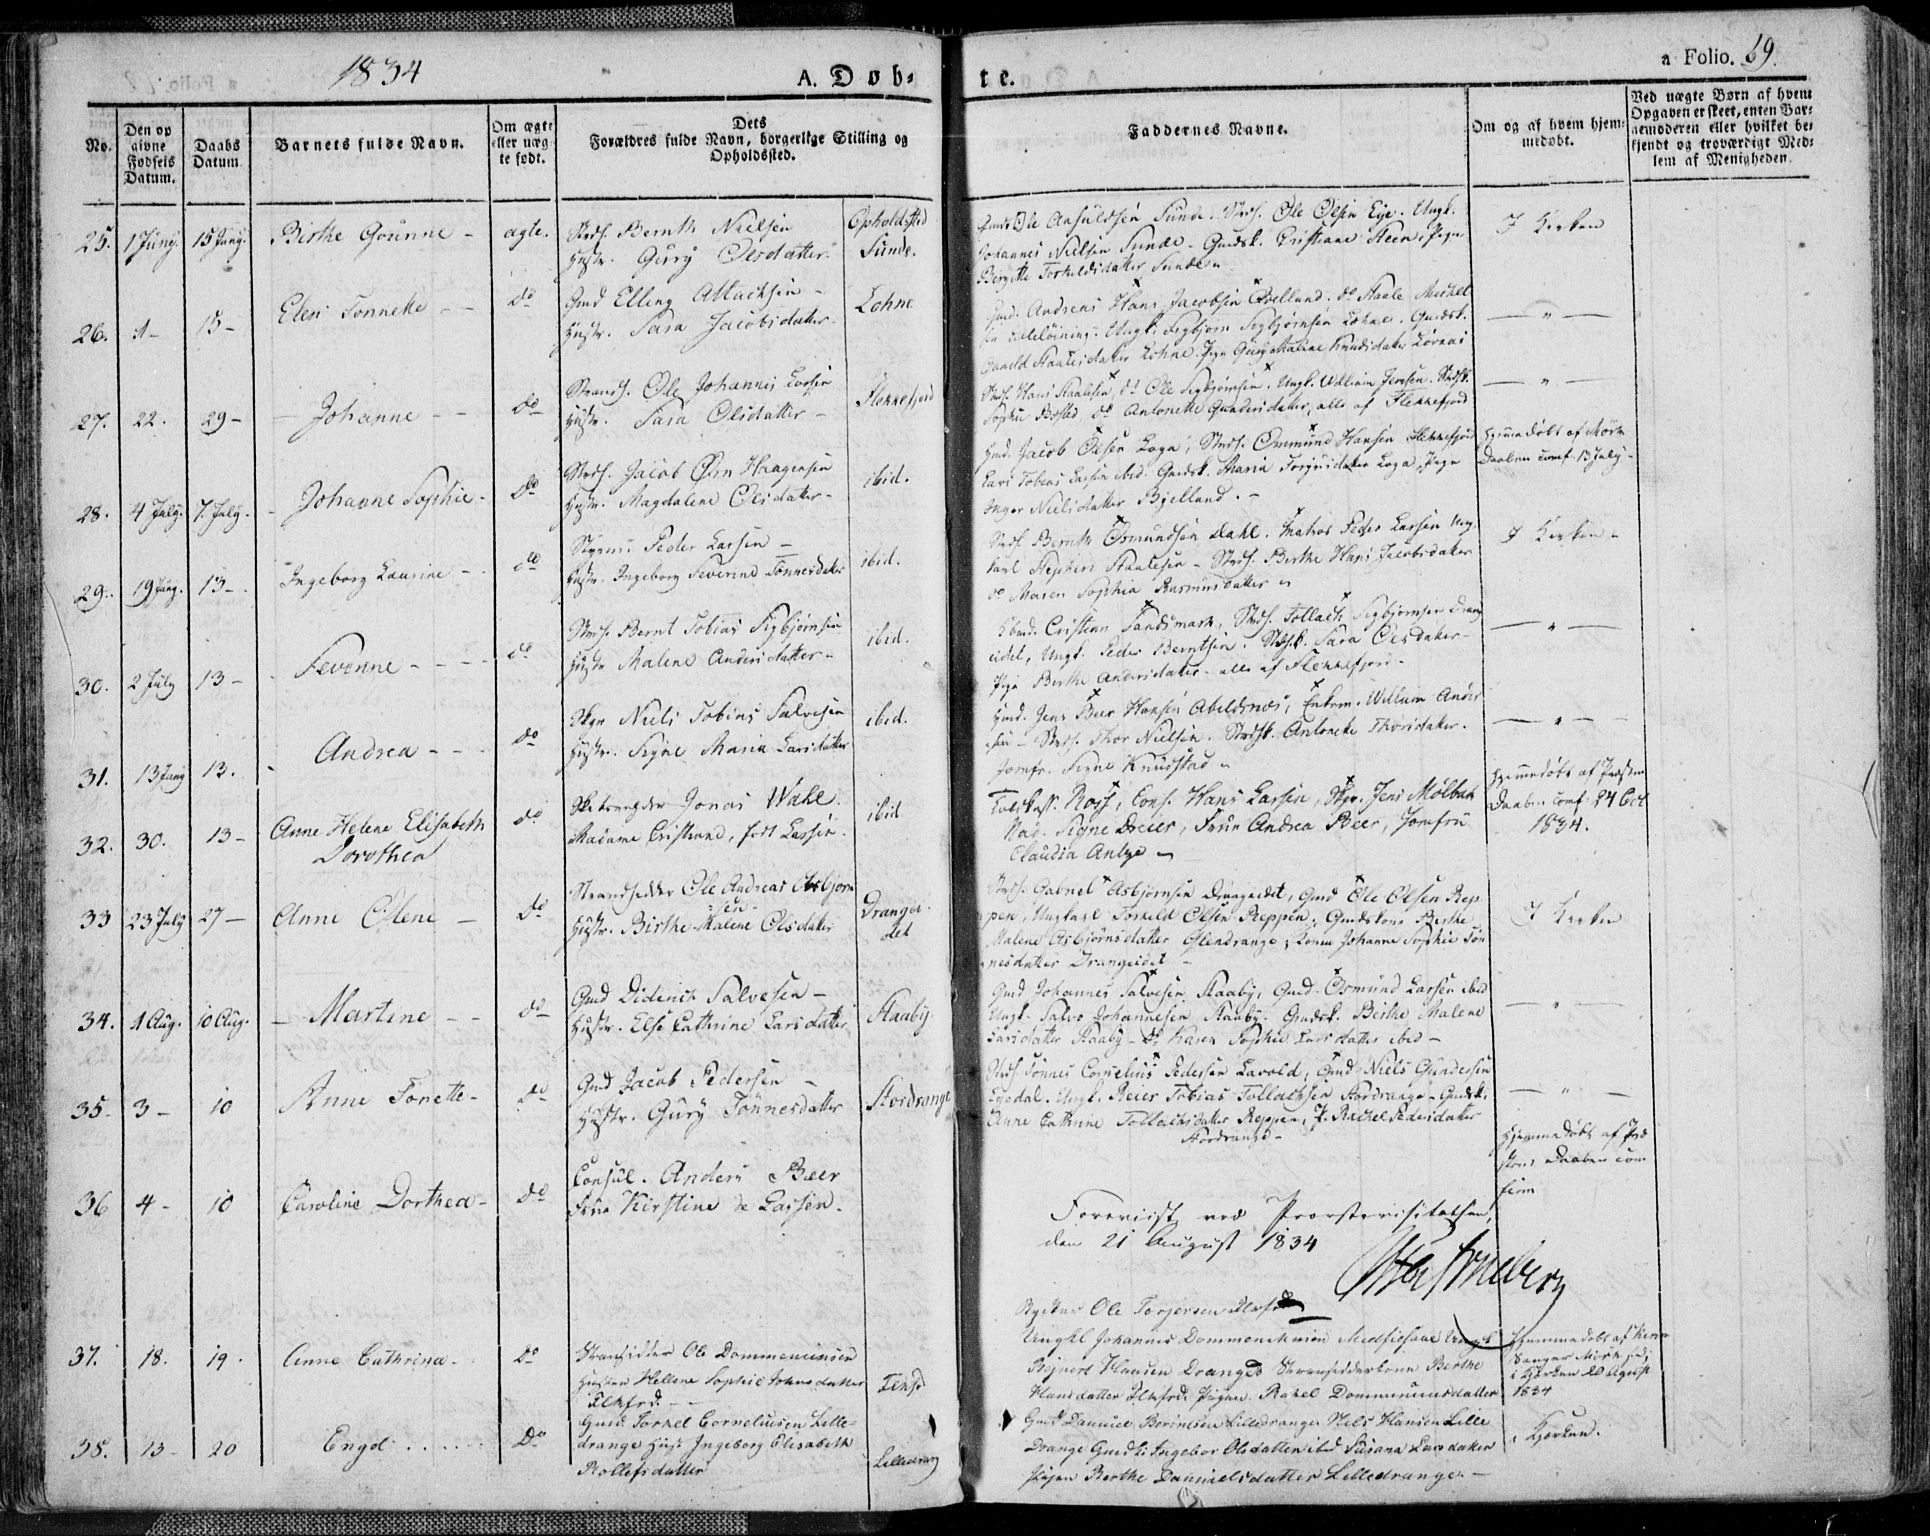 1834
A. Døb-
te.
a Folio. 69.
No.
Den op
givne
Fødsels
Datum.
Daabs
Datum
Barnets fulde Navn.
Om ægte
eller uæg-
te født.
Dets
Forældres fulde Navn, borgerlige Stilling og
Opholdssted.
Faddernes Navne.
Om og af hvem hjem-
medøbt.
Ved uægte Børn af hvem
Opgaven er skeet, enten Bar-
nemoderen eller hvilket be-
kjendt og troværdigt Med-
lem af Menigheden.
25. 1 Juny. 15 Juny. Birthe Gounne - ægte.
Strds. Bernth Nielsen
Hustr. Gury Olsdatter
Opholdssted
Sunde.
Ole Aasuldsen Sunde. Strds. Ole Olsen Eye. Ungk.
Johannes Nielsen Sunde - Gmdsk. Cristiane Steen, Pige
Bergitte Torkildsdatter Sunde
I Kirken
26. 1 - 15 - Elen Tonnette - do
Gmd Elling Attachsen -
Hustr. Sara Jacobsdatter
Lohne
Gmd. Andreas Hans Jacobsen do Staale Michel
Ungk. Sigbjørn Sigbjørnsen Lohne. Gmdsk.
Staalesdatter Lohne. Pige Gury Malene Knudsdatter
— " —
27. 22. 29 - Johanne - - do
Strands. Ole Johannes Larsen
Hustr. Sara Olsdatter -
Flekkefjord
Strds. Hans Staalesen, do Ole Sigbjørnsen. Ungk. William Jensen. Strdsk.
Sophie do Antonette Gundersdatter, alle af Flekkefjord
— " —
28. 4 July. 7. July. - Johanne Sophie - do
Strds. Jacob Ørn Haagensen
Hustr. Magdalene Olsdatter -
ibid.
Gmd. Jacob Olsen Loga, Strds. Osmund Hansen Flekkefjord
Lars Tobias Larsen ibid. Gmdsk. Maria Torgersdatter Loga, Pige
Inger Nielsdatter Bjelland. -
Hjemmedøbt af
Daaben conf. 13 July -
29. 19 Juny. 13 -. Ingeborg Laurine - do
Styrm. Peder Larsen -
Hustr. Ingeborg Severine Tønnesdatter
ibid.
Strds. Bernth Osmundsen Dahl. Matros Peder Larsen Ung-
karl Stephen Staalesen - Strds. Birthe Hans Jacobsdatter
do Maren Sophia Rasmusdatter
I Kirken -
30. 2 July 13 - - Severine - - - do
Strds. Bernt Tobias Sigbjørnsen
Hustr Malene Andersdatter -
ibid.
Cristian Sandsmark, Strds. Tollach Sigbjørnsen Drang
eidet, Ungk. Peder Berntsen. Strdsk. Sara Olsdatter -
Pige Berthe Andersdatter - alle af Flekkefjord -
— " —
31. 13 Juny 13. Andrea - - - do
Skpr Niels Tobias Salvesen
Hustr. Signe Maria Larsdatter
ibid.
Gmd. Jens Beer Hansen Abeldsnes, Enkem. Willum Anders
sen - Strds. Thor Nielsen. Strdsk. Antonette Thorsdatter.
Jomfr. Signe Knudstad
— " —
32. 30. 13 - Anne Helene Elisabeth
Dorothea
do
Jonas Wahl.
Madame Cristiane, født Lassen.
ibid
Toldkass. Ross, Cons. Hans Larsen, Skpr. Jens Mølbak
Mad. Signe Dreier, Frue Andrea Beer, Jomfru
Claudia Antze
Hjemmedøbt af Præsten
Daaben conf. 24 Oct
1834.
33 23 July 27 — Anne Olene — do
Strandsidder Ole Andreas Asbjørn
sen -
Hustr. Birthe Malene Olsdatter
Drangei-
det
Strds. Gabriel Asbjørnsen Drangeidet, Gmd Ole Olsen Rep-
pen, Ungkarl Torkeld Olsen Reppen. Gmdskone Berthe
Malene Asbjørnsdatter Østendrange, Kone Johanne Sophie Tøn
nesdatter Drangeidet -
I Kirken
34. 1 Aug. 10 Aug. — Martine - - do
Gmd Diderich Salvesen -
Hustr. Else Cathrine Larsdatter
Staaby
Gmd Johannes Salvesen Staaby, Gmd. Osmund Larsen ibid
Ungk. Salve Johannesen Staaby. Gmdsk. Birthe Malene
Larsdatter Staaby - do Karen Sophie Larsdatter ibid -
— " —
35. 3 - 10 Anne Tonette - do
Gmd Jacob Pedersen -
Hustr. Gury Tønnesdatter
Stordrange
Strds Tønnes Cornelius Pedersen Lavold, Gmd. Niels Gundersen
Eyedal. Ungk. Reier Tobias Tollachsen Stordrange - Gmdsk.
Anne Cathrine Tollachsdatter Reppen, P. Rachel Pedersdatter
Stordrange -
— " —
36 4 - 10 Caroline Dorthea - do
Consul. Anders Beer
Frue Kirstine de Lassen -
Hjemmedøbt af Præ
sten, Daaben con
firm
Foreviist ved Provstevisitatsen,
den 21 August 1834
37. 18. 19. Anne Cathrina - Do
Stransidder Ole Dommenimsen
Hustru Hellene Sophie Johnsdatter
Flkfrd. - -
Ole Torjersen Flkfrd
Ungkl Johannes
Rejnert Hansen Dranged Stransidderkone Berthe
Hansdatter Flkfrd. Pigen Rakel Dommenimsdatter
Hjemmedøbt af Kirke
Sanger Mörk
i Kjerken 20 Agust
1834
38. 13 - 20 Engel . . . . . Do
Gmd. Torkel Corneliusen Lille-
drange Hust Ingeborg Elisabeth
Rollefsdatter
Lilledrang
Gmd Danniel Berentsen Lilledrange Nels Hansen Lille
Drange Gmdk Ingebor Olsdatter ibid Susana Larsdatter
Pigen Berthe Dannielsdatter Lilledrange. -
i Kjerken.